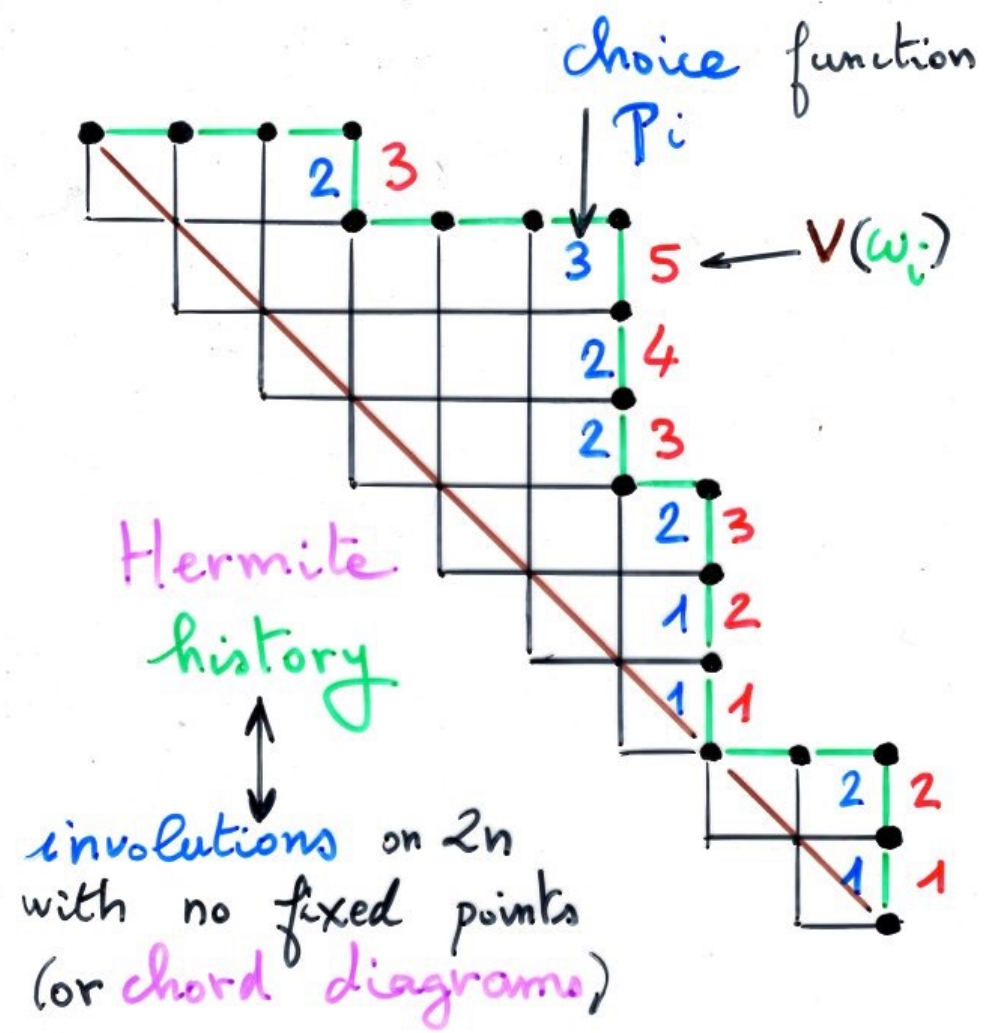 choice function
Pi
2 3
3 5
V(ωi)
2 4
2 3
2 3
1 2
1 1
2 2
1 1
Hermite
history
involutions on 2n
with no fixed points
(or chord diagrams)